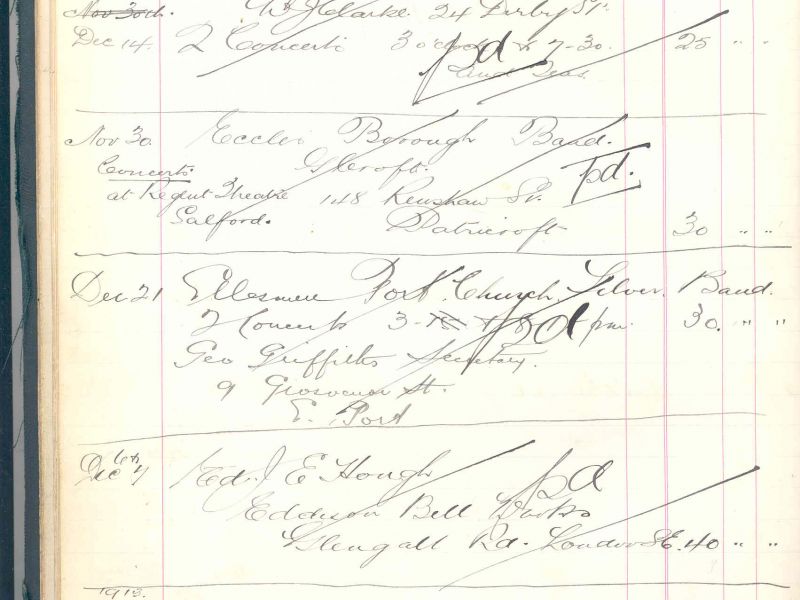 Nov 30th. W. J. Clarke. 24 Derby St.
Dec 14. 2 Concerts 3 o'clock & 7-30. 25 " "
pd
and Teas
Nov 30. Eccles Borough Band.
Concerts. G Croft. pd.
at Regent Theatre 148 Renshaw St.
Salford. Patricroft 30 " "
Dec 21 Ellesmere Port Church Silver Band.
2 Concerts 3-15 & 8 pm. 30. " "
pd
Geo Griffiths Secretary.
9 Grosvenor St.
E. Port
6th
Dec 7 Ed. J. E Hough pd
Edison Bell Works
Glengall Rd. London S.E. 40 " "
1913.